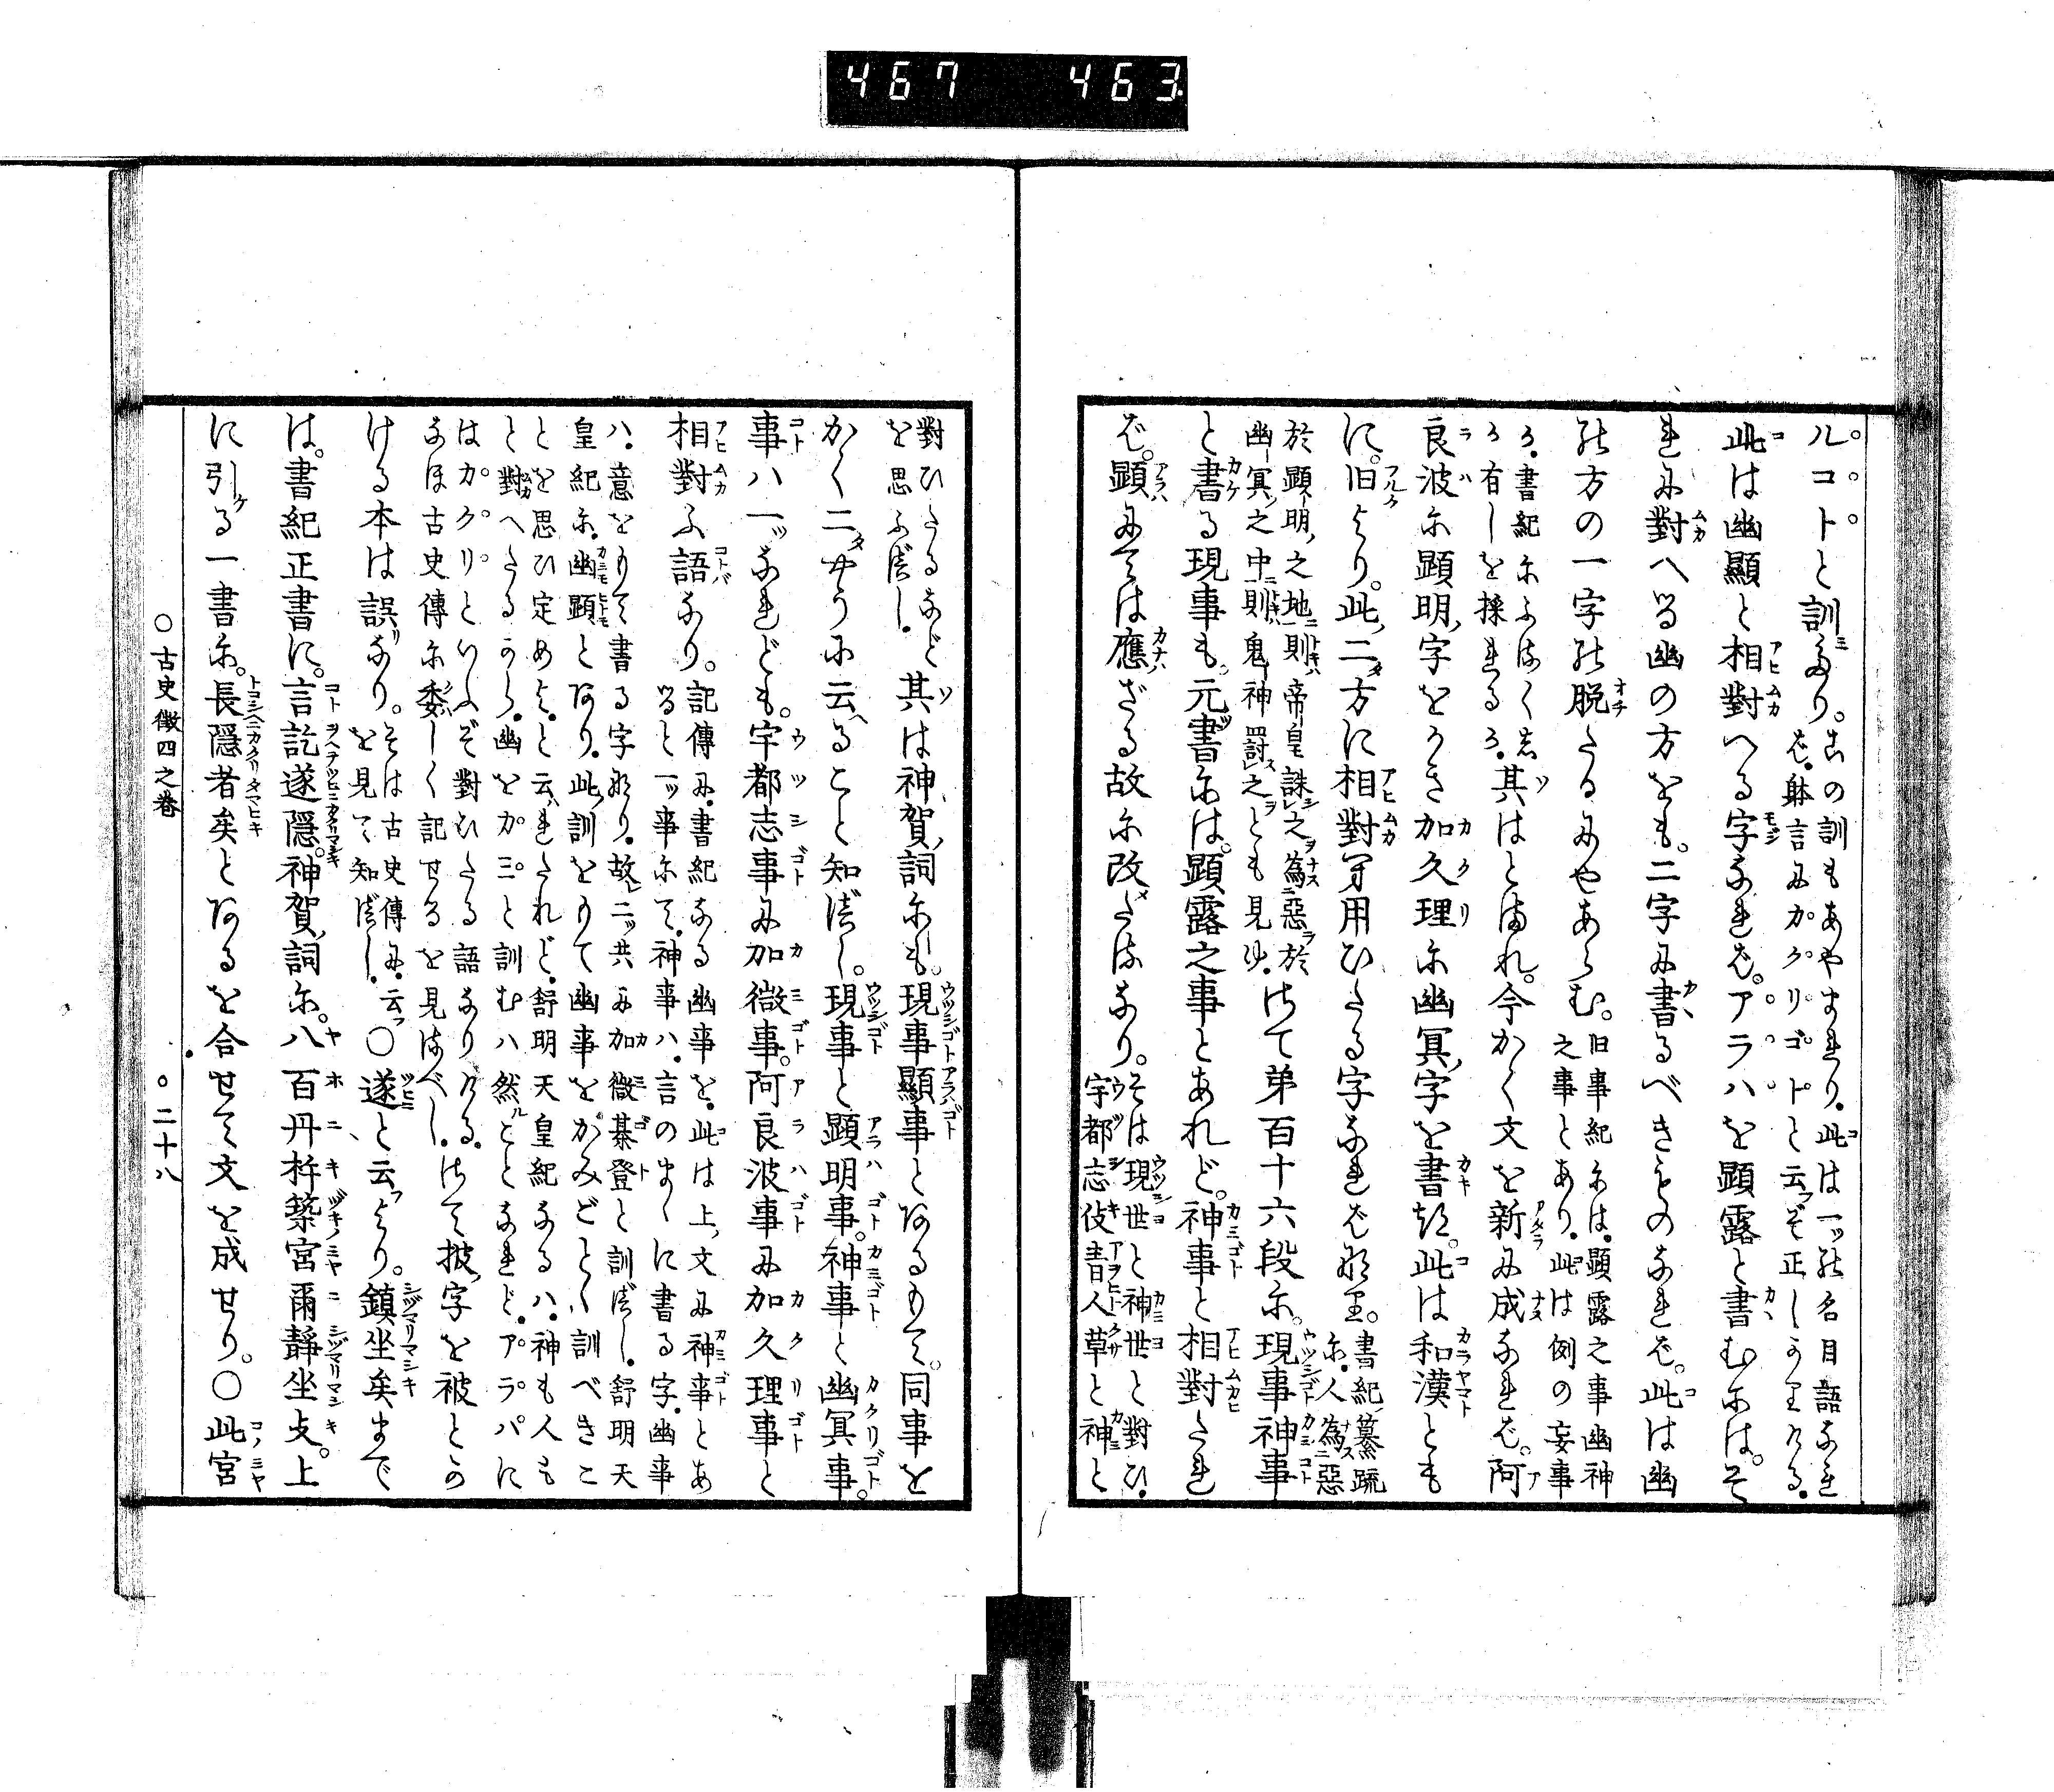 467 463
ルコトと訓り。
この訓もあやまれり。此は一ッの名目語なれ
ば。躰言にカクリゴトと云ぞ正しかりける。
此は幽顯と相對へる字なれば。アラハを顕露と書むには。そ
れに對へる幽の方をも。二字に書るべきものなれば。此は幽
の方の一字の脱たるにやあらむ。
旧事紀には。顕露之事幽神
之事とあり。此は例の妄事
其はとまれ。今かく文を新に成なれば。阿
良波に顕明字をかき加久理に幽冥字を書き。此は和漢とも
に。旧より。此二方に相對て用ひたる字なればなり。
書紀纂疏
に。人為惡
於顕明之地則帝皇誅之為惡於
幽冥之中則鬼神罰之とも見ゆ。
さて第百十六段に。現事神事
と書る現事も。元書には。顕露之事とあれど。神事と相對たれ
ば。顕にては應ざる故に改たるなり。
そは現世と神世と對ひ。
宇都志伎青人草と神と
對ひたるなど
を思ふべし。
其は神賀詞にも。現事顯事とあるもて。同事を
かく二やうに云ること知べし。現事と顕明事。神事と幽冥事。
事ハ一ッなれども。宇都志事に加微事。阿良波事に加久理事と
相對ふ語なり。
記傳に。書紀なる幽事を。此は上文に神事とあ
ると一ッ事にて。神事ハ。言のまゝに書る字。幽事
ハ。意をもて書る字なり。故二ッ共に加微碁登と訓べし。舒明天
皇紀に。幽顕とあり。此訓をもて幽事をかみごとゝ訓べきこ
とを思ひ定めよ。と云れたれど。舒明天皇紀なるハ。神も人も
と對へたるから。幽をカミと訓むハ然ことなれど。アラハに
はカクリといふぞ對ひたる語なりける。
なほ古史傳に委しく記せるを見るべし。
さて披字を被とか
ける本は誤なり。
そは古史傳に。云フ
を見て知べし。
○遂と云より。鎮坐矣まで
は。書紀正書に。言訖遂隠。神賀詞に。八百丹杵築宮爾靜坐支。上
に引る一書に。長隠者矣とあるを合せて文を成せり。○此宮
○古史徴四之巻
○二十八